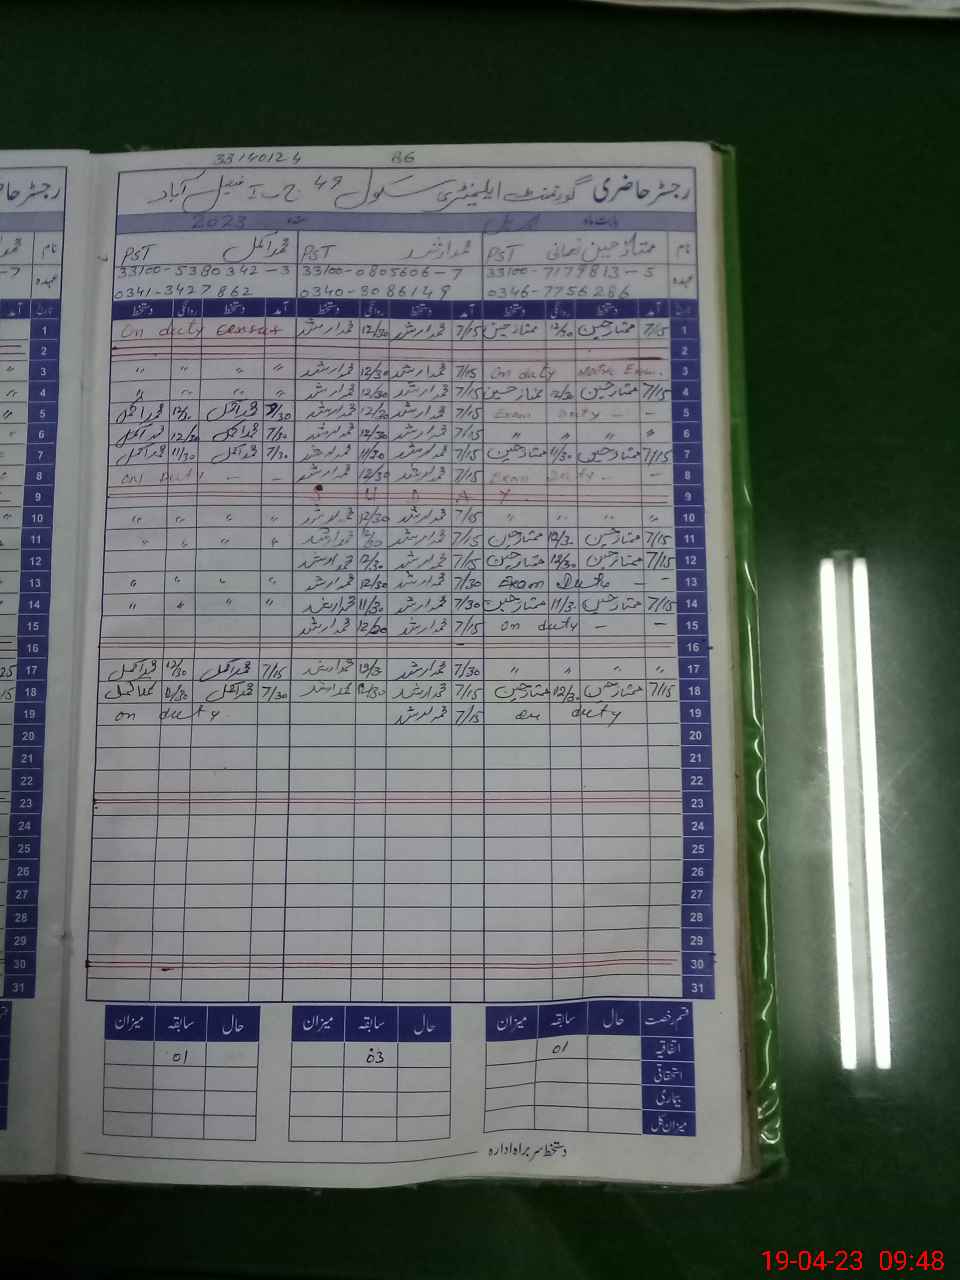 3314012 4 86
رجسٹر حاضری گورنمنٹ ایلیمنٹری سکول 49 ج ب I فیصل آباد
بابت ماہ اپریل سنہ 2023
نام ممتاز حسین نعمانی PST محمد ارشد PST محمد اکمل PST
عہدہ 33100-7179813-5 33100-0805606-7 33100-5380342-3
0346-7756286 0340-8086149 0341-3427862
تاریخ آمد دستخط روانگی دستخط آمد دستخط روانگی دستخط آمد دستخط روانگی دستخط
1 7/15 ممتاز حسین 12/30 ممتاز حسین 7/15 محمد ارشد 12/30 محمد ارشد On duty census
2
3 On duty Exam. 7/15 محمد ارشد 12/30 محمد ارشد " " " "
4 7/15 ممتاز حسین 12/30 ممتاز حسین 7/15 محمد ارشد 12/30 محمد ارشد " " " "
5 Exam Duty - - 7/15 محمد ارشد 12/30 محمد ارشد 7/30 محمد اکمل 12/30 محمد اکمل
6 " " " " 7/15 محمد ارشد 12/30 محمد ارشد 7/30 محمد اکمل 12/30 محمد اکمل
7 7/15 ممتاز حسین 11/30 ممتاز حسین 7/15 محمد ارشد 11/30 محمد ارشد 7/30 محمد اکمل 11/30 محمد اکمل
8 Exam Duty - - 7/15 محمد ارشد 12/30 محمد ارشد on duty - -
9 S U N D A Y
10 " " " " 7/15 محمد ارشد 12/30 محمد ارشد " " " "
11 7/15 ممتاز حسین 12/3. ممتاز حسین 7/15 محمد ارشد 12/30 محمد ارشد " " " "
12 7/15 ممتاز حسین 12/30 ممتاز حسین 7/15 محمد ارشد 12/30 محمد ارشد
13 Exam Duty - - 7/30 محمد ارشد 12/30 محمد ارشد " " " "
14 7/15 ممتاز حسین 11/3. ممتاز حسین 7/30 محمد ارشد 11/30 محمد ارشد " " " "
15 on duty - - 7/15 محمد ارشد 12/30 محمد ارشد
16
17 " " " " 7/30 محمد ارشد محمد ارشد 7/15 محمد اکمل 12/30 محمد اکمل
18 7/15 ممتاز حسین 12/30 ممتاز حسین 7/15 محمد ارشد 12/30 محمد ارشد 7/30 محمد اکمل 12/30 محمد اکمل
19 on duty 7/15 محمد ارشد on duty.
20
21
22
23
24
25
26
27
28
29
30
31
قسم رخصت حال سابقہ میزان حال سابقہ میزان حال سابقہ میزان
اتفاقیہ 01 03 01
استحقاقی
بیماری
میزان کل
دستخط سربراہ ادارہ
19-04-23 09:48